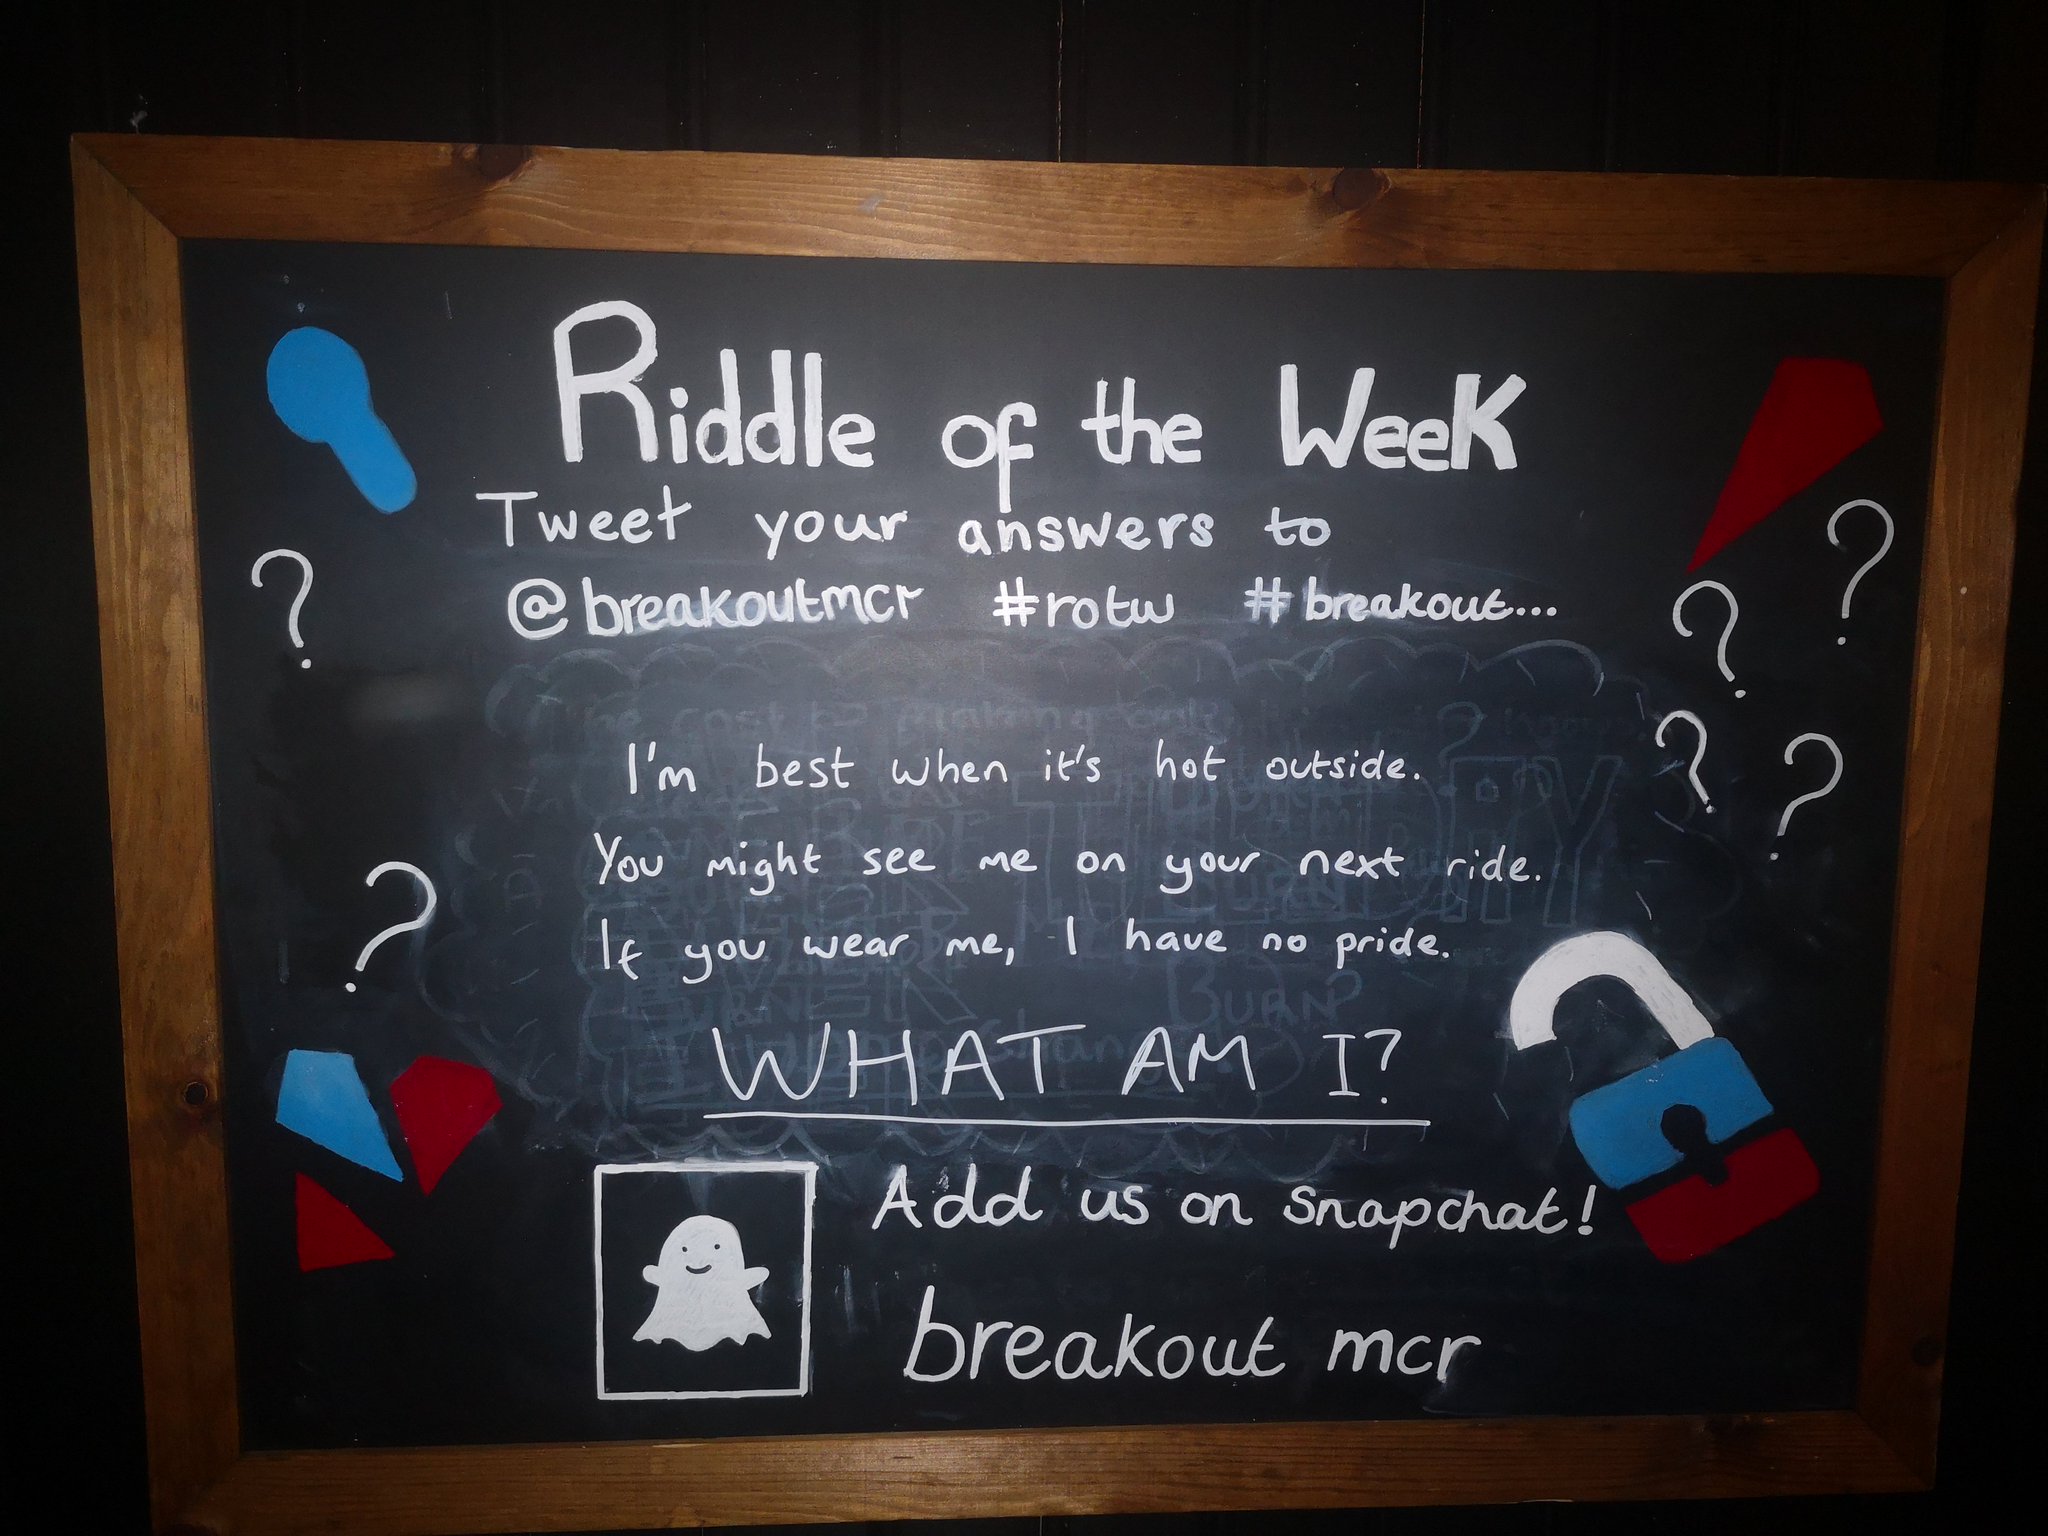 Riddle of the Week
Tweet your answers to
@breakoutmcr #rotw #breakout...
I'm best when it's hot outside.
You might see me on your next ride.
If you wear me, I have no pride.
WHAT AM I?
Add us on Snapchat!
breakout mcr